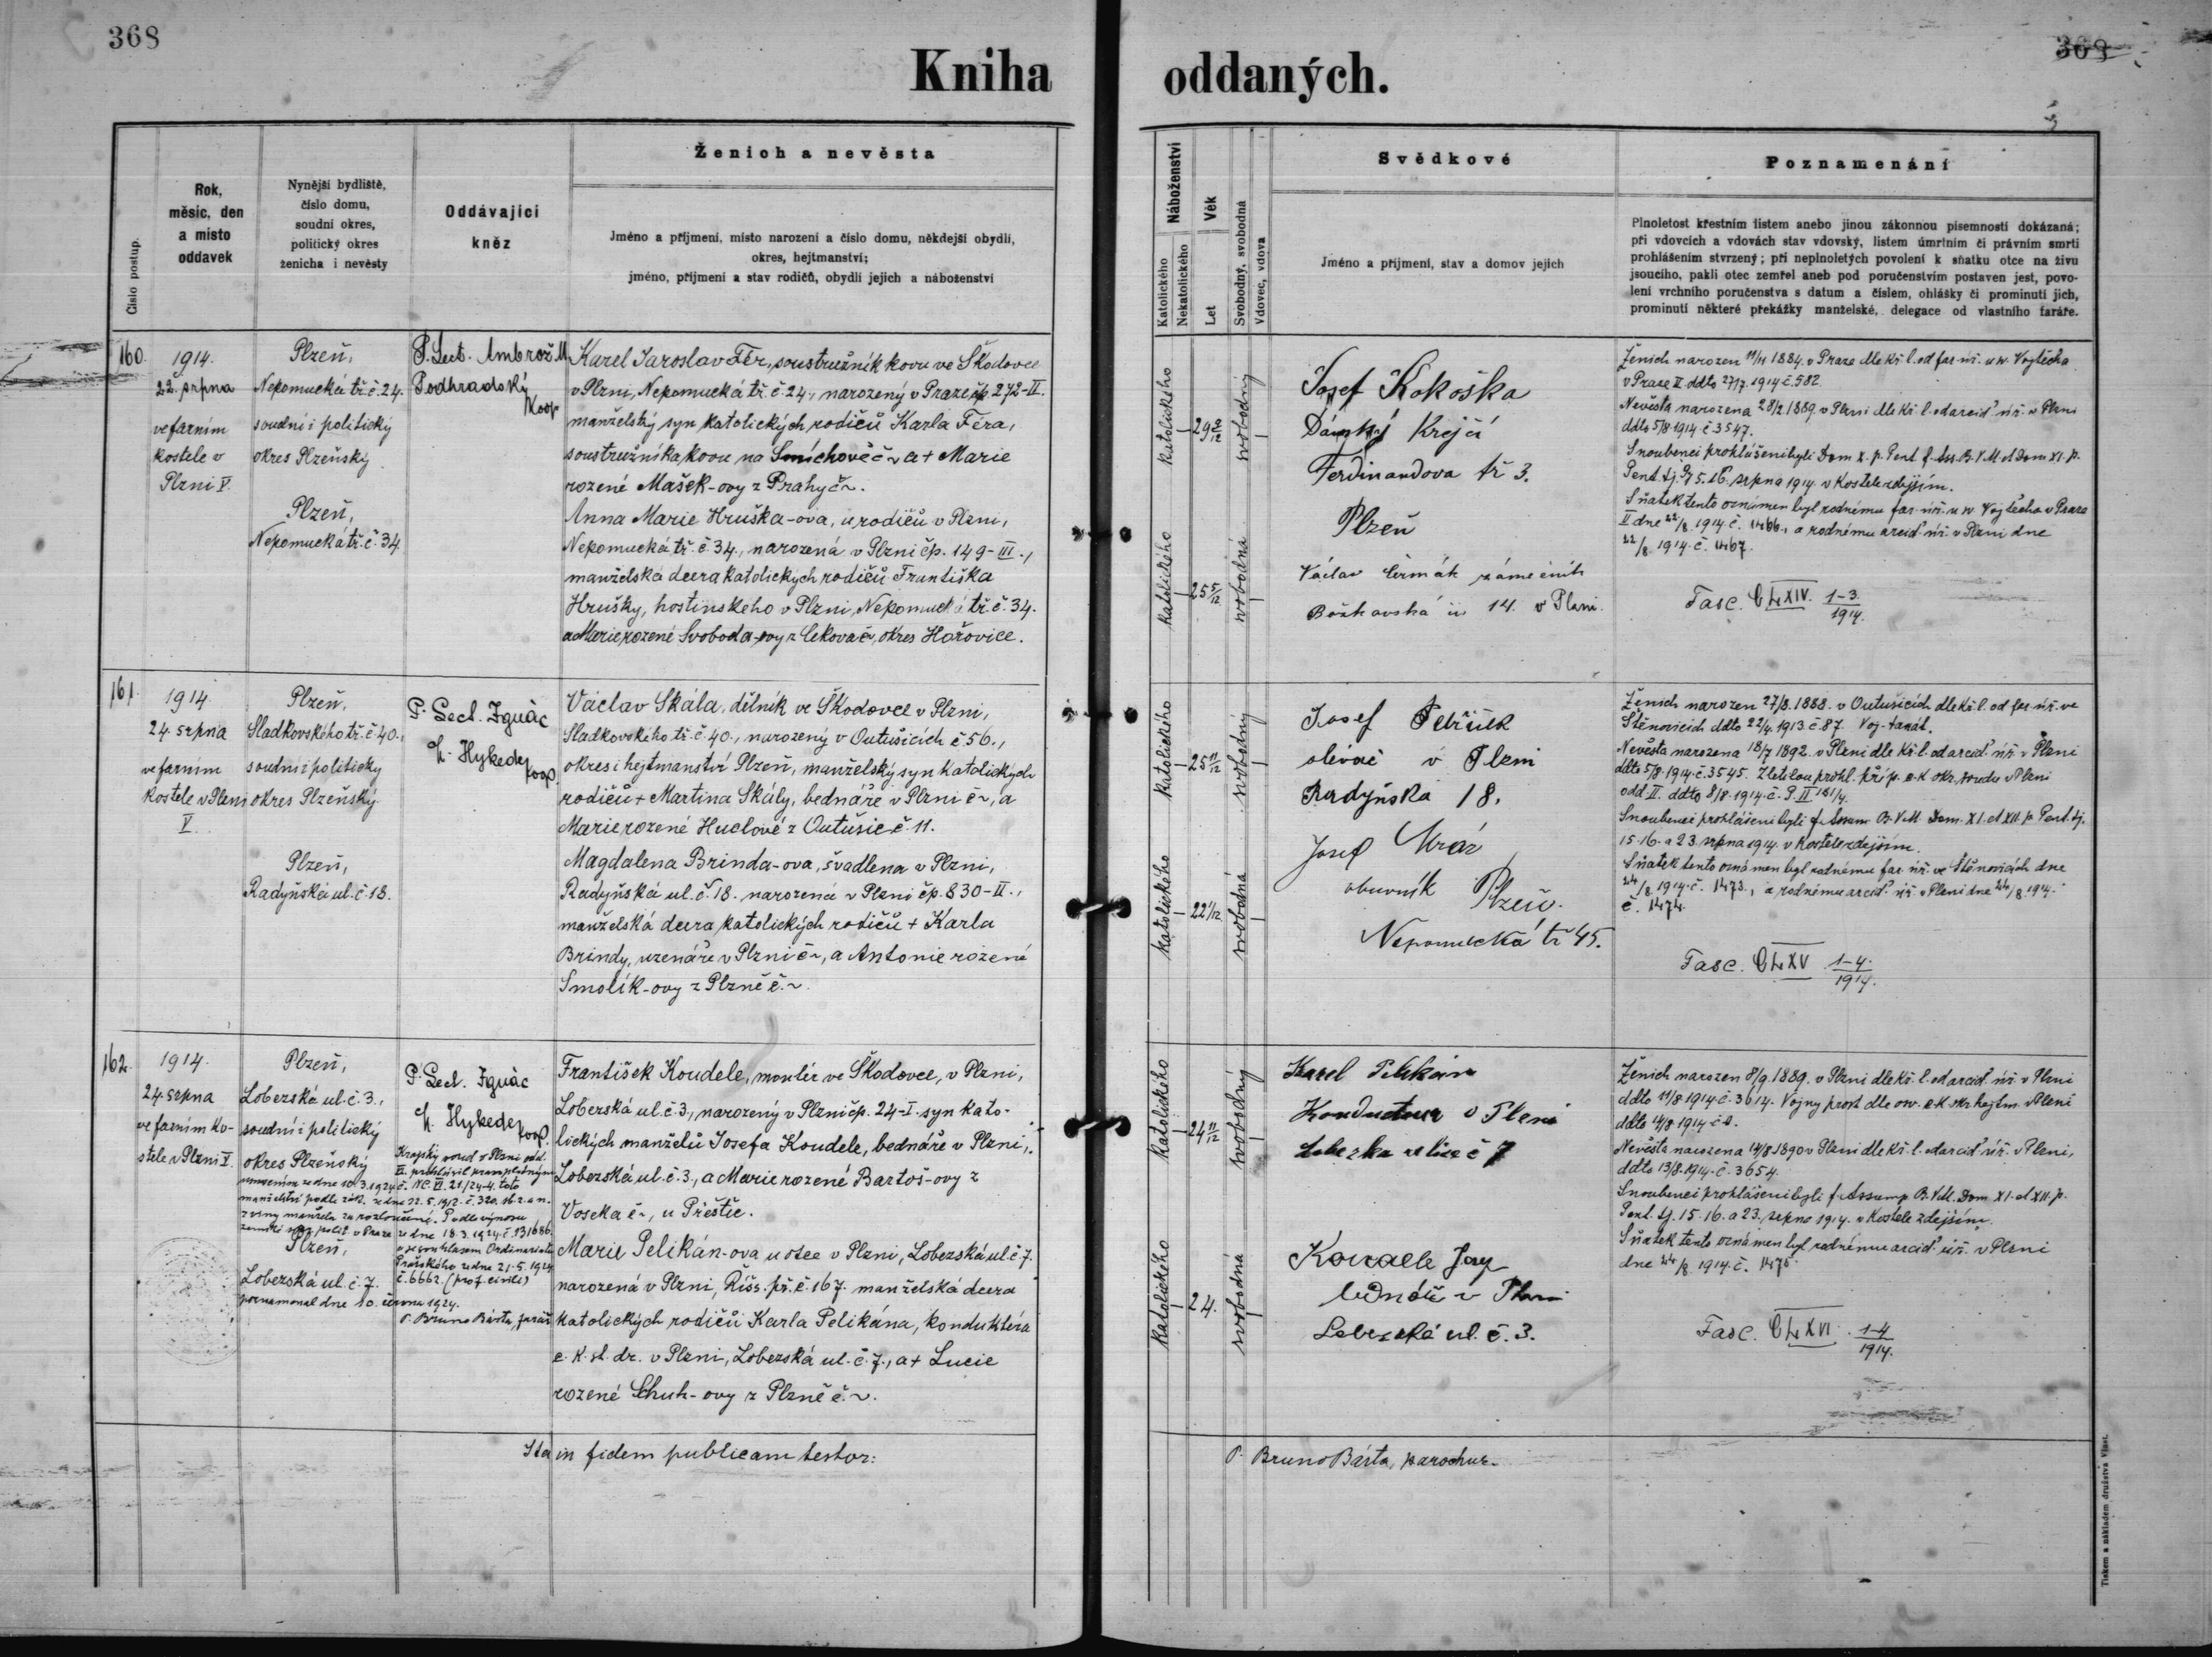 368
Kniha oddaných.
369
Číslo postup.
Rok,
měsíc, den
a místo
oddavek
Nynější bydliště,
číslo domu,
soudní okres,
politický okres
ženicha i nevěsty
Oddávající
kněz
Ženich a nevěsta
Jméno a příjmení, místo narození a číslo domu, někdejší obydlí,
okres, hejtmanství;
jméno, příjmení a stav rodičů, obydlí jejich a náboženství
Náboženství
Katolického
Nekatolického
Věk
Let
Svobodný, svobodná
Vdovec, vdova
Svědkové
Jméno a příjmení, stav a domov jejich
Poznamenání
Plnoletost křestním listem anebo jinou zákonnou písemností dokázaná;
při vdovcích a vdovách stav vdovský, listem úmrtním či právním smrti
prohlášením stvrzený; při neplnoletých povolení k sňatku otce na živu
jsoucího, pakli otec zemřel aneb pod poručenstvím postaven jest, povo-
lení vrchního poručenstva s datum a číslem, ohlášky či prominutí jich,
prominutí některé překážky manželské, delegace od vlastního faráře.
160.
1914.
22. srpna
ve farním
kostele v
Plzni V.
Plzeň,
Nepomucká tř. č. 24.
soudní i politický
okres Plzeňský
Plzeň,
Nepomucká tř. č. 34
P. Lect. Ambrož M
Podhradský
Koop
Karel Jaroslav Fér, soustružník kovu ve Škodovce
v Plzni, Nepomucká tř. č. 24., narozený v Praze čp. 272-II.
manželský syn katolických rodičů Karla Féra,
soustružníka kovu na Smíchově č ~ a + Marie
rozené Mašek-ovy z Prahy č ~.
Anna Marie Hruška-ova, u rodičů v Plzni,
Nepomucká tř. č. 34., narozená v Plzni čp. 149-III.,
manželská dcera katolických rodičů Františka
Hrušky, hostinského v Plzni, Nepomucká tř. č. 34.
a Marie rozené Svoboda-ovy z Cekova č ~, okres Hořovice.
katolického
29 9/12
svobodný
katolického
25 5/12
svobodná
Josef Kokoška
Dámský Krejčí
Ferdinandova tř 3.
Plzeň
Václav Čermák zámečník
Božkovská ul 14. v Plzni.
Ženich narozen 11/11 1884. v Praze dle kř. l. od far. úř. u sv. Vojtěcha
v Praze II. ddto 27/7. 1914 č. 582.
Nevěsta narozena 28/2 1889. v Plzni dle kř. l. od arciď. úř. v Plzni
ddto 5/8 1914 č 3547.
Snoubenci prohlášeni byli Dom X. p. Pent. f. Ass. B. V. M. et Dom XI. p.
Pent. tj. 9. 15. 16. srpna 1914. v kostele zdejším.
Sňatek tento oznámen byl rodnému far. úř. u sv. Vojtěcha v Praze
II dne 22/8. 1914 č. 1466., a rodnému arciď. úř. v Plzni dne
22/8. 1914. č. 1467.
Fasc. CLXIV. 1-3./1914.
161.
1914.
24. srpna
ve farním
kostele v Plzni
V.
Plzeň,
Sladkovského tř. č. 40.,
soudní i politický
okres Plzeňský.
Plzeň,
Radyňská ul. č. 18.
P. Lect. Ignác
L. Hykede
koop.
Václav Skála, dělník ve Škodovce v Plzni,
Sladkovského tř. č. 40., narozený v Outušicích č 56.,
okres i hejtmanství Plzeň, manželský syn katolických
rodičů + Martina Skály, bednáře v Plzni č ~, a
Marie rozené Huclové z Outušic č. 11.
Magdalena Brinda-ova, švadlena v Plzni,
Radyňská ul. č. 18. narozená v Plzni čp. 830-II.,
manželská dcera katolických rodičů + Karla
Brindy, uzenáře v Plzni č ~, a Antonie rozené
Smolík-ovy z Plzně č. ~
katolického
25 11/12
svobodný
katolického
22 1/12
svobodná
Josef Petřílek
slévač v Plzni
Radyňska 18.
Josef Mráz
obuvník Plzeň.
Nepomucká tř 45.
Ženich narozen 27/8. 1888. v Outušicích dle kř. l. od far. úř. ve
Štěnovicích ddto 22/4. 1913. č. 87.
Nevěsta narozena 18/7 1892. v Plzni dle kř. l. od arciď. úř. v Plzni
ddto 5/8. 1914. č. 3545. Zletilou prohl. příp. c. k. okr. soudu v Plzni
odd. II. ddto 8/8. 1914. č. P. II 161/4.
Snoubenci prohlášeni byli f. Assum. B. V. M. Dom. XI. et XII. p. Pent. tj.
15. 16. a 23. srpna 1914. v kostele zdejším.
Sňatek tento oznámen byl rodnému far. úř. ve Štěnovicích dne
24/8. 1914. č. 1473., a rodnému arciď. úř. v Plzni dne 24/8. 1914.
č. 1474.
Fasc. CLXV 1-4./1914.
162.
1914.
24. srpna
ve farním ko-
stele v Plzni V.
Plzeň,
Loberská ul. č. 3.,
soudní i politický
okres Plzeňský
Plzeň,
Loberská ul. č. 7.
P. Lect. Ignác
L. Hykede
koop.
Krajský soud v Plzni odd.
VI. prohlásil pravoplatným
usnesením ze dne 10. 3. 1924 č. Nc VI. 21/24-4. toto
manželství podle zák. ze dne 22. 5. 1919. č. 320. sb. z. a n.
z viny manžela za rozloučené. Podle výnosu
zemské spr. polit. v Praze ze dne 18. 3. 1924. č. 131686.
a se souhlasem Ordinariátu
Pražského ze dne 21. 5. 1924
č. 6662. (prof. civili)
poznamenal dne 10. června 1924.
P. Bruno Bárta, farář
František Koudele, montér ve Škodovce, v Plzni,
Loberská ul. č. 3., narozený v Plzni čp. 24-I. syn kato-
lických manželů Josefa Koudele, bednáře v Plzni,
Loberská ul. č. 3., a Marie rozené Bartoš-ovy z
Voseka č ~, u Přeštic.
Marie Pelikán-ova u otce v Plzni, Loberská ul. č. 7.
narozená v Plzni, Říšs. př. č. 167. manželská dcera
katolických rodičů Karla Pelikána, konduktéra
c. k. st. dr. v Plzni, Loberská ul. č. 7., a + Lucie
rozené Schuh-ovy z Plzně č. ~.
katolického
24 11/12
svobodný
katolického
24.
svobodná
Karel Pelikán
Konducteur v Plzni
č 7
bednář v Plzni
Loberská ul. č. 3.
Ženich narozen 8/9. 1889. v Plzni dle kř. l. od arciď. úř. v Plzni
ddto 11/8 1914 č. 3614. Vojny prost dle osv. c. k. okr. hejtm. v Plzni
ddto 14/8 1914
Nevěsta narozena 14/8 1890 v Plzni dle kř. l. od arciď. úř. v Plzni,
ddto 13/8. 1914. č. 3654.
Snoubenci prohlášeni byli f. Assump. B. V. M. Dom XI. et XII. p.
Pent. tj. 15. 16. a 23. srpna 1914. v kostele zdejším.
Sňatek tento oznámen byl rodnému arciď. úř. v Plzni
dne 24/8. 1914. č. 1475.
Fasc. CLXVI. 1-4/1914.
Ita in fidem publicam testor: P. Bruno Bárta, parochus.
Tiskem a nákladem družstva Vlast.